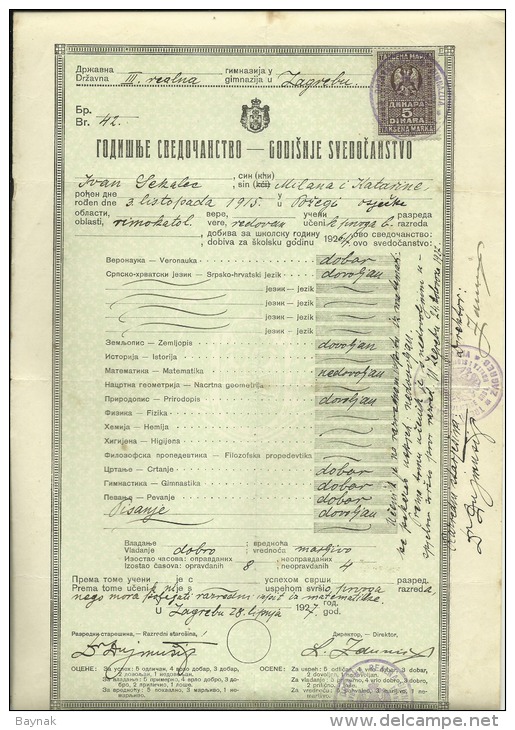 Државна гимназија у
Državna III. realna gimnazija u Zagrebu
ТАКСЕНА МАРКА
ДИНАРА
5
DINARA
ТАКСЕНА МАРКА
Бр.
Br. 42.
ГОДИШЊЕ СВЕДОЧАНСТВО — GODIŠNJE SVEDOČANSTVO
син (кћи)
Ivan Sekalec, sin (kći) Milana i Katarine,
рођен дне
rođen dne 3. listopada 1915. u
области, вере, учени разреда
oblasti, rimokatol. vere, redovan učeni k prvoga b. razreda
добива за школску годину ово сведочанство:
dobiva za školsku godinu 1926/7 ovo svedočanstvo:
Веронаука — Veronauka dobar
Српско-хрватски језик — Srpsko-hrvatski jezik dovoljan
језик — jezik
језик — jezik
језик — jezik
Земљопис — Zemljopis dovoljan
Историја — Istorija
Математика — Matematika nedovoljan
Нацртна геометрија — Nacrtna geometrija
Природопис — Prirodopis dovoljan
Физика — Fizika
Хемија — Hemija
Хигијена — Higijena
Филозофска пропедевтика — Filozofska propedevtika
Цртање — Crtanje dobar
Гимнастика — Gimnastika dobar
Певање — Pevanje dobar
Pisanje dovoljan
Владање вредноћа
Vladanje dobro vrednoća marljivo
Изостао часова: оправданих неоправданих
Izostao časova: opravdanih 8 neopravdanih 4
Према томе учени је с успехом сврши разреда
Prema tome učeni k nije s uspehom svršio prvoga razreda
nego mora polagati razredni ispit iz matematike.
год.
U Zagrebu 28. lipnja 1927 god.
Разредни старешина, — Razredni starešina, Директор, — Direktor,
Dr Dujmušić
ОЦЕНЕ: За успех: 5 одличан, 4 врло добар, 3 добар, 2 довољан, 1 недовољан.
За владање: 5 примерно, 4 врло добро, 3 добро, 2 прилично, 1 лоше.
За вредноћу: 5 похвално, 3 марљиво, 1 немарљиво.
OCENE: Za uspeh: 5 odličan, 4 vrlo dobar, 3 dobar, 2 dovoljan, 1 nedovoljan.
Za vladanje: 5 primerno, 4 vrlo dobro, 3 dobro, 2 prilično, 1 loše.
Za vrednoću: 5 pohvalno, 3 marljivo, 1 nemarljivo.
Učenik je na razrednom ispitu iz matematike
nedovoljan.
Razredni starješina: direktor:
Dr Dujmušić
Baynak
www.delcampe.net